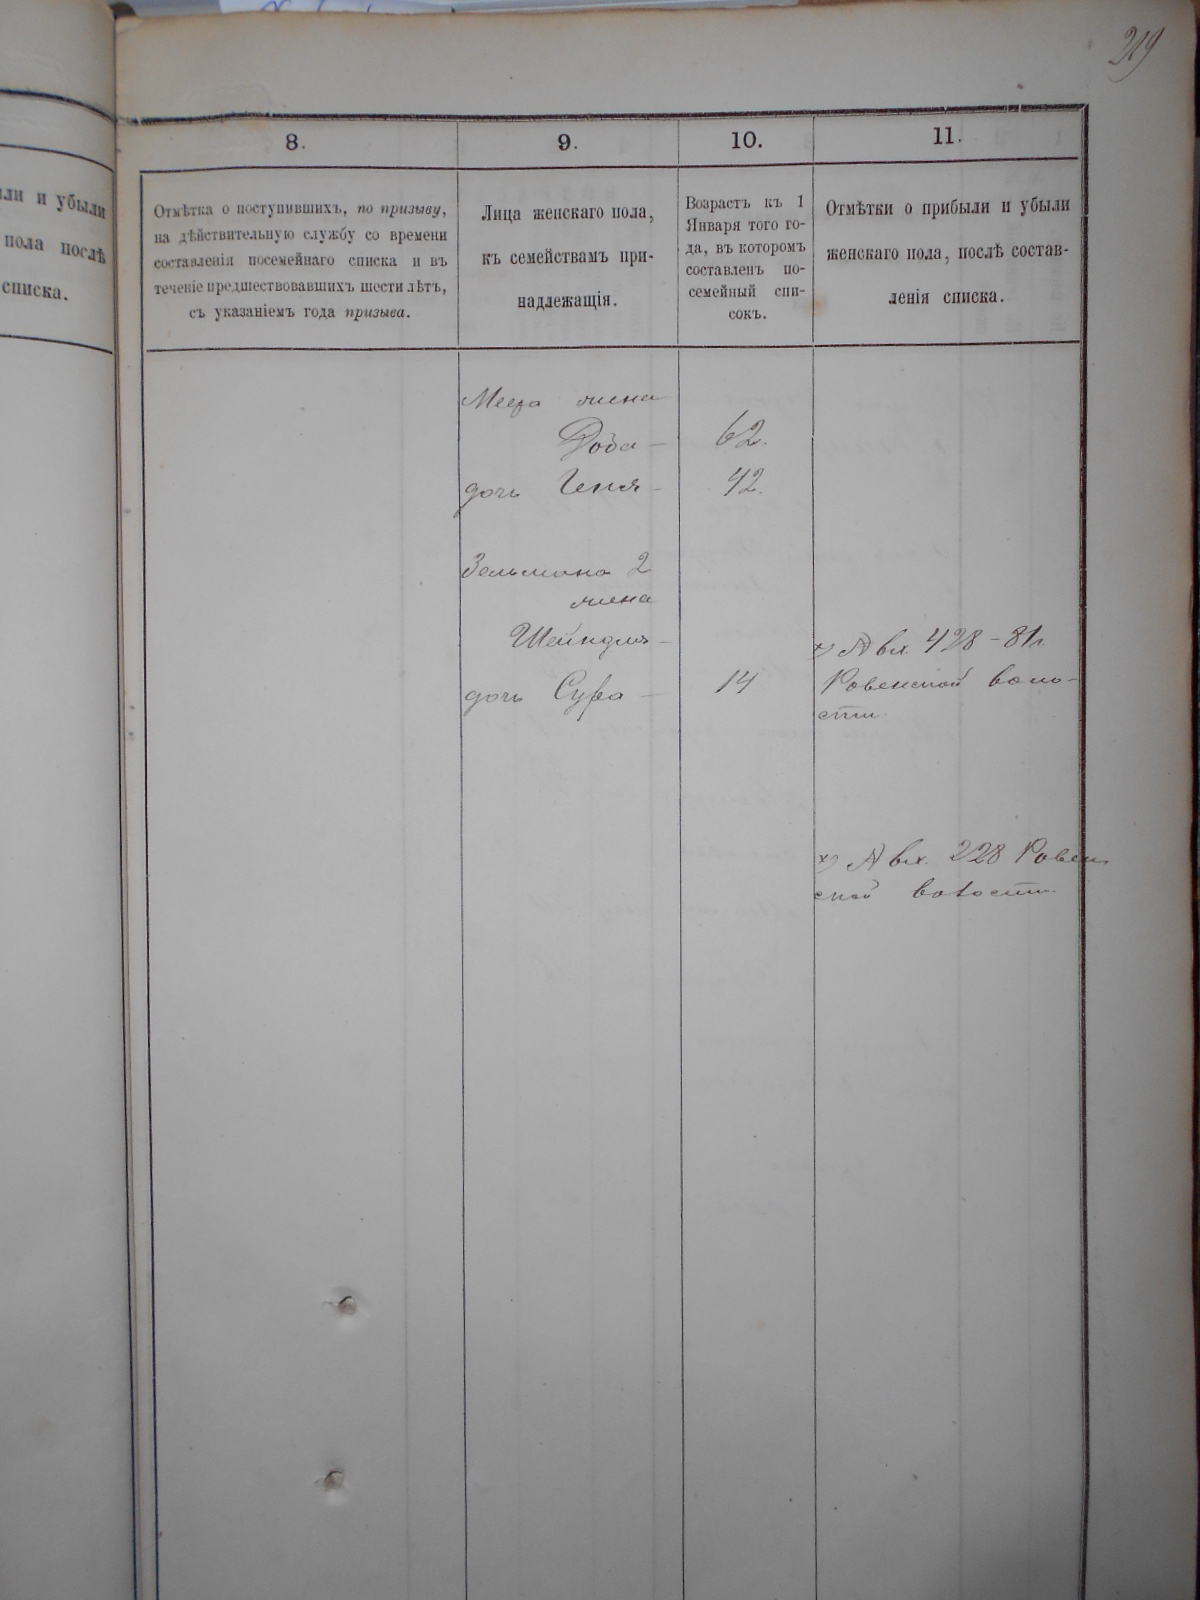 219
или и убыли
пола послѣ
списка.
8.
9.
10.
11.
Отмѣтка о поступившихъ, по призыву,
на дѣйствительную службу со времени
составленія посемейнаго списка и въ
теченіе предшествовавшихъ шести лѣтъ,
съ указаніемъ года призыва.
Лица женскаго пола,
къ семействамъ при-
надлежащія.
Возрастъ къ 1
Января того го-
да, въ которомъ
составленъ по-
семейный спи-
сокъ.
Отмѣтки о прибыли и убыли
женскаго пола, послѣ состав-
ленія списка.
Меера жена
Доба — 62.
дочь Геня — 42.
Зельмана 2
жена
Шейндля —
дочь Сура — 14
х) № вх. 428 – 81 г.
Ровенской воло-
сти.
х) № вх. 228 Ровен
ской волости.